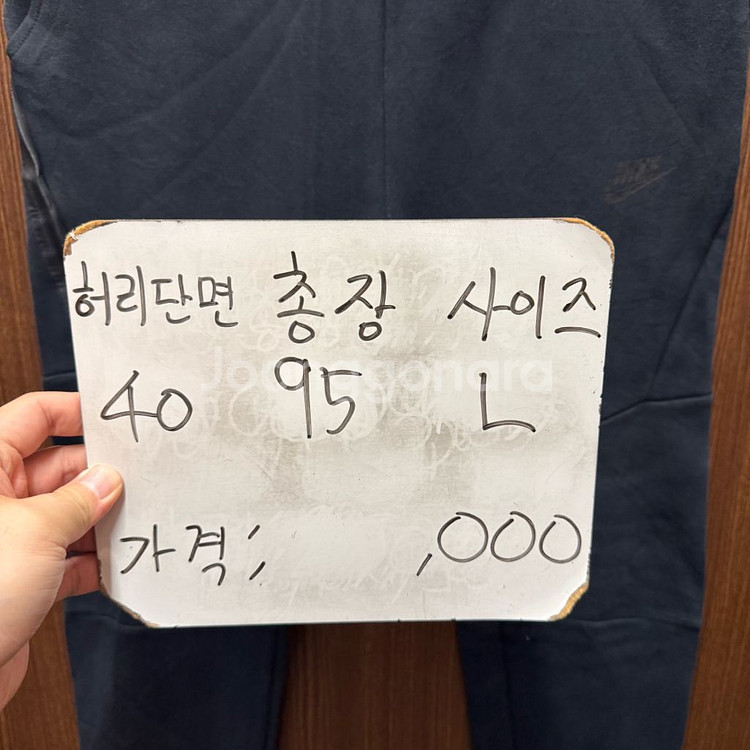 허리단면 총장 사이즈
40 95 L
가격; ,000
Joonggonara